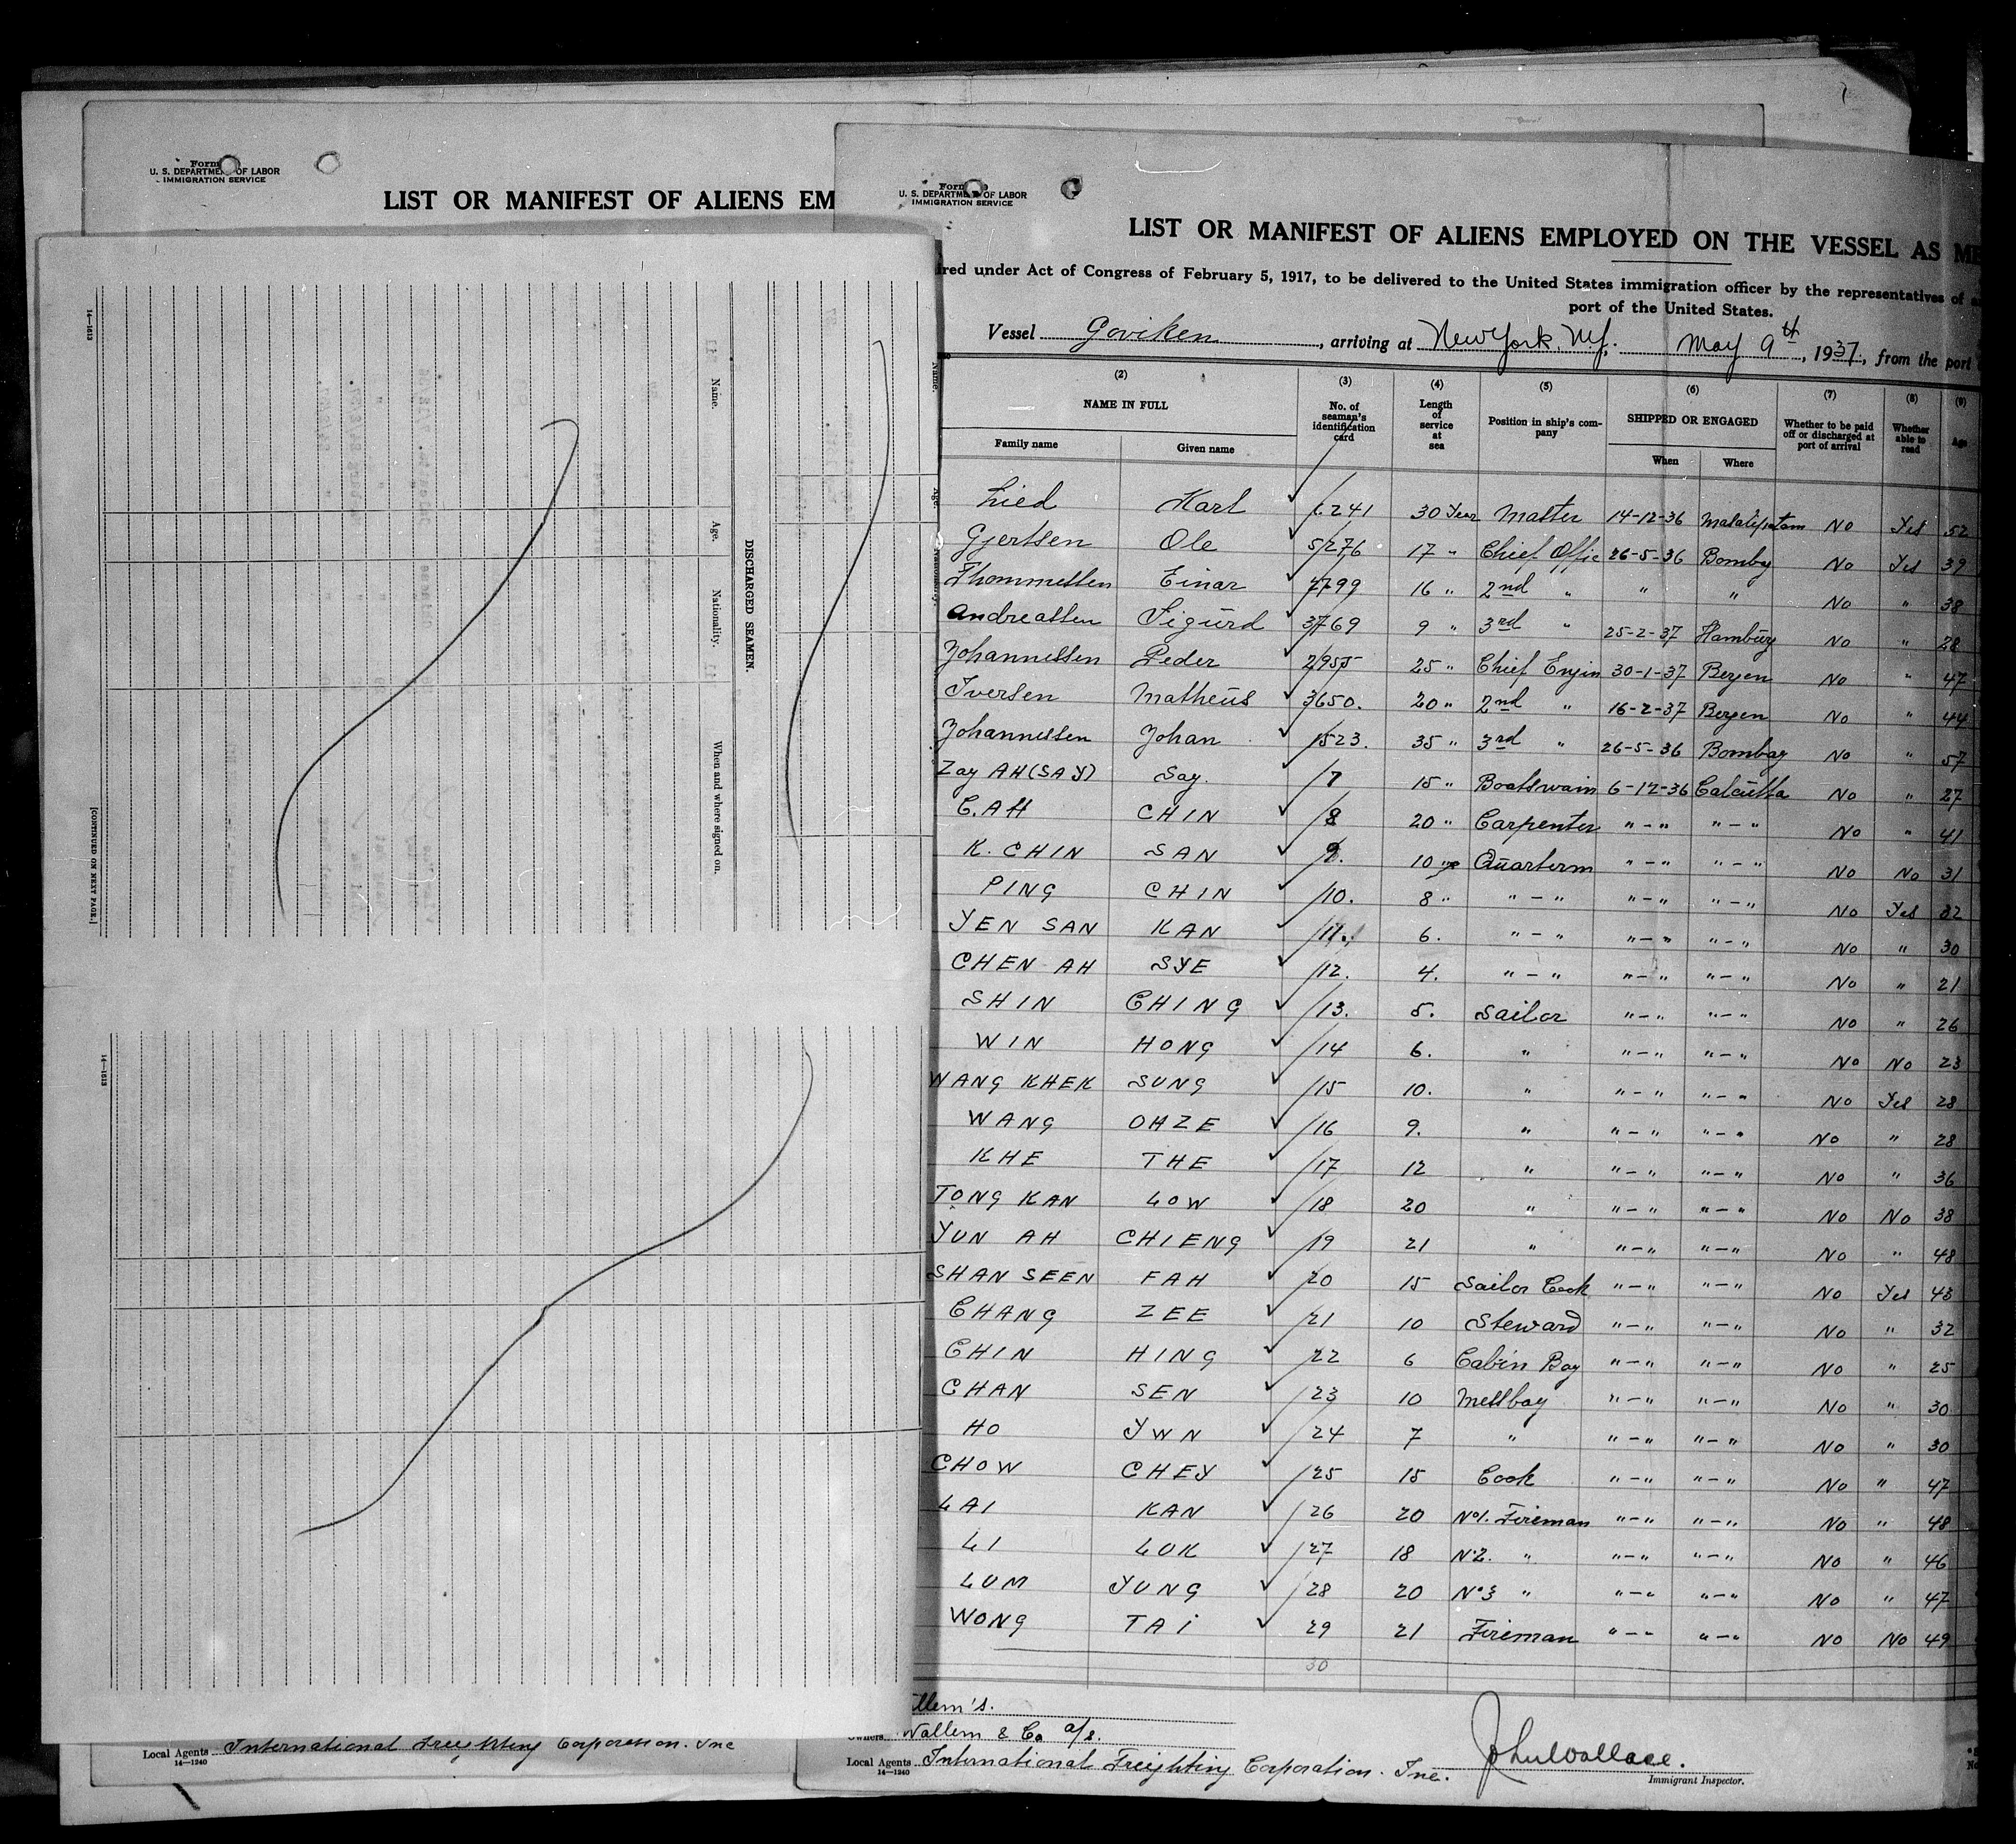 U. S. DEPARTMENT OF LABOR
IMMIGRATION SERVICE
LIST OR MANIFEST OF ALIENS EM
14—1613
Name.
Age.
Nationality.
When and where signed on.
DISCHARGED SEAMEN.
[CONTINUED ON NEXT PAGE.]
14—1613
Local Agents International Freighting Corporation. Inc
14—1240
U. S. DEPARTMENT OF LABOR
IMMIGRATION SERVICE
LIST OR MANIFEST OF ALIENS EMPLOYED ON THE VESSEL AS ME
ired under Act of Congress of February 5, 1917, to be delivered to the United States immigration officer by the representatives of a
port of the United States.
Vessel Goviken, arriving at New York, N.Y. May 9th, 1937, from the port
(2) (3) (4) (5) (6) (7) (8) (9)
NAME IN FULL No. of seaman's identification card Length of service at sea Position in ship's company SHIPPED OR ENGAGED Whether to be paid off or discharged at port of arrival Whether able to read Age
Family name Given name When Where
Lied Karl 1241 30 Year Master 14-12-36 No Yes 52
Gjertsen Ole 5276 17 " Chief Offic 26-5-36 Bombay No Yes 39
Thommessen Einar 4799 16 " 2nd " " " No " 38
Andreassen Sigurd 3769 9 " 3rd " 25-2-37 Hamburg No " 28
Johannessen Peder 2955 25 " Chief Engin 30-1-37 Bergen No " 47
Iversen Matheus 3650. 20 " 2nd " 16-2-37 Bergen No " 44
Johannessen Johan 1523. 35 " 3rd " 26-5-36 Bombay No " 57
Zay AH (SAY) Say. 7 15 " Boatswain 6-12-36 Calcutta No " 27
C. AH CHIN 8 20 " Carpenter "-" "-" No " 41
K. CHIN SAN 9. 10 " Quarterm "-" "-" No No 31
PING CHIN 10. 8 " "-" "-" "-" No Yes 32
YEN SAN KAN 11. 6. "-" "-" "-" No " 30
CHEN AH SYE 12. 4. "-" "-" "-" No " 21
SHIN CHING 13. 5. Sailor "-" "-" No " 26
WIN HONG 14 6. " "-" "-" No No 23
WANG KHEK SUNG 15 10. " "-" "-" No Yes 28
WANG OHZE 16 9. " "-" "-" No " 28
KHE THE 17 12 " "-" "-" No " 36
TONG KAN LOW 18 20 " "-" "-" No No 38
YUN AH CHIENG 19 21 " "-" "-" No " 48
SHAN SEEN FAH 20 15 Sailor Cook "-" "-" No Yes 43
CHANG ZEE 21 10 Steward "-" "-" No " 32
CHIN HING 22 6 Cabin Boy "-" "-" No " 25
CHAN SEN 23 10 Messboy "-" "-" No " 30
HO YWN 24 7 " "-" "-" No " 30
CHOW CHEY 25 15 Cook "-" "-" No " 47
LAI KAN 26 20 No1. Fireman "-" "-" No " 48
LI LUK 27 18 No2. " "-" "-" No " 46
LUM YUNG 28 20 No3 " "-" "-" No " 47
WONG TAI 29 21 Fireman "-" "-" No No 49
30
llem's.
Owners Wallem & Co a/s.
Local Agents International Freighting Corporation. Inc.
14—1240
John Wallace.
Immigrant Inspector.